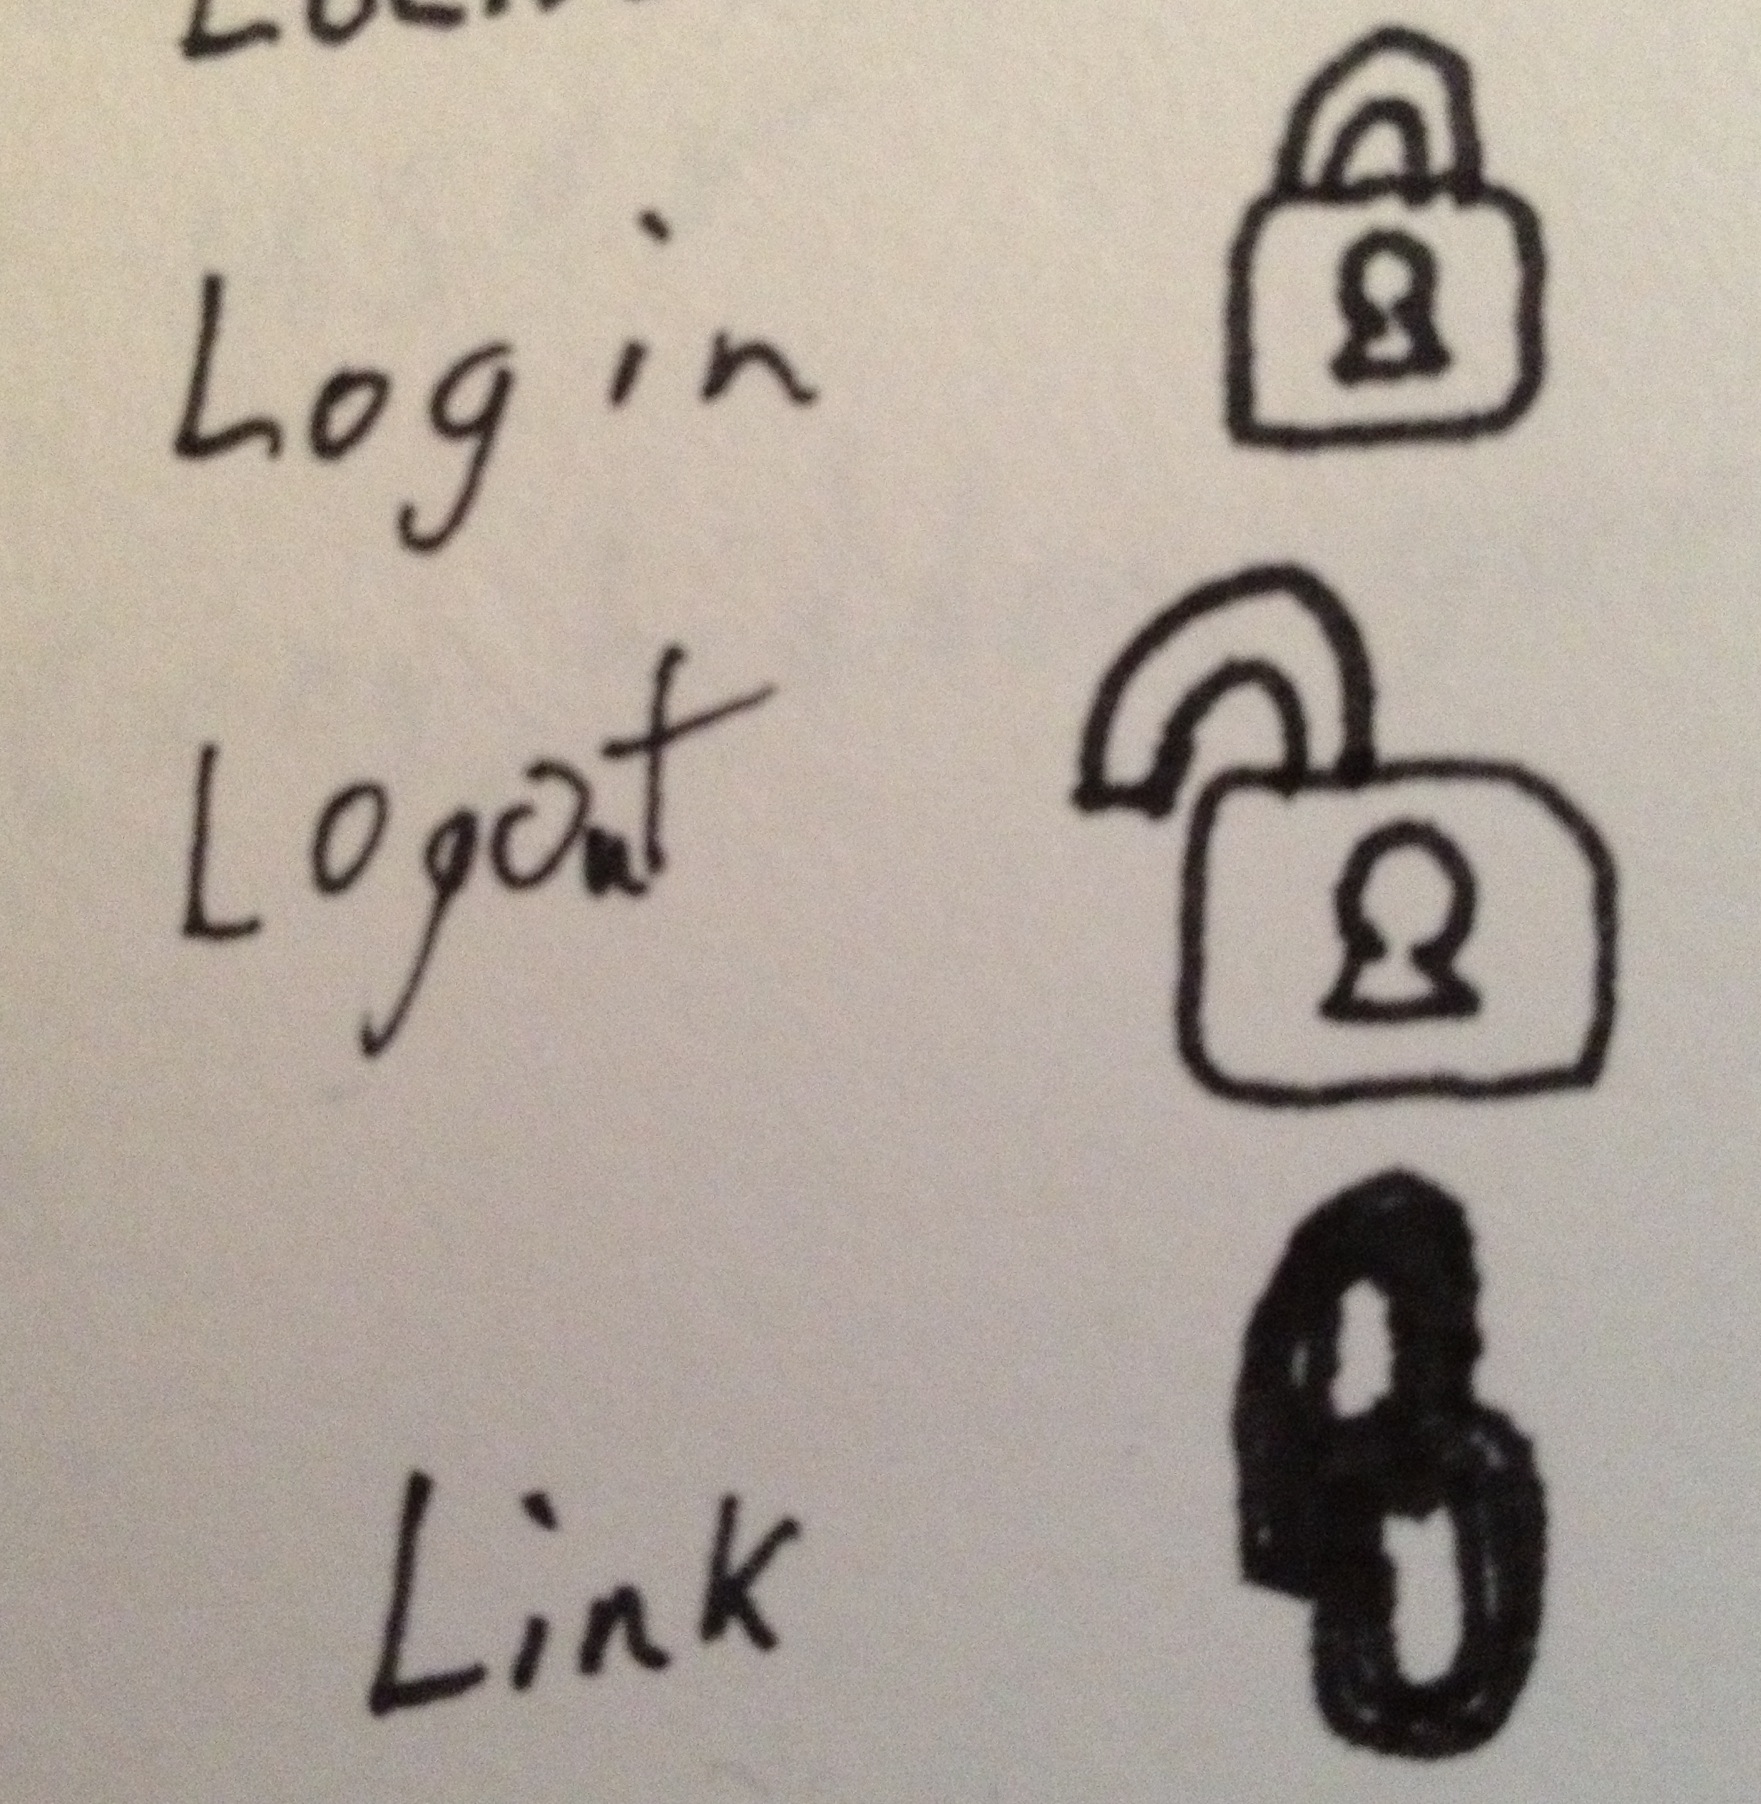 Login
Logout
Link